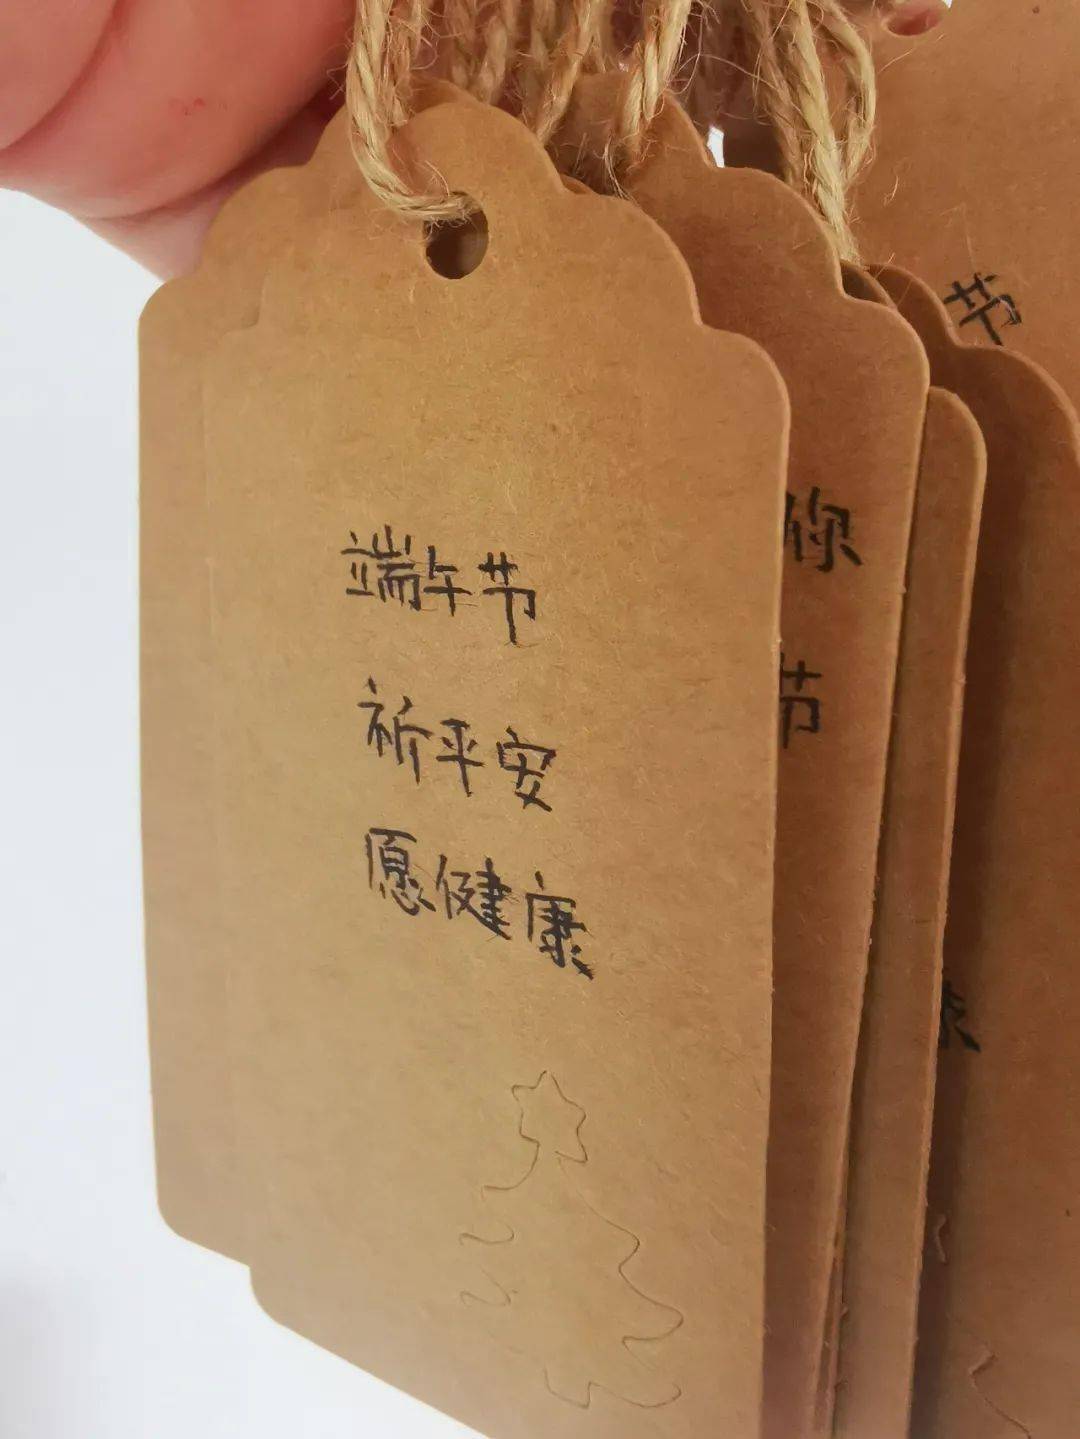 端午节
祈平安
愿健康
你
节
节